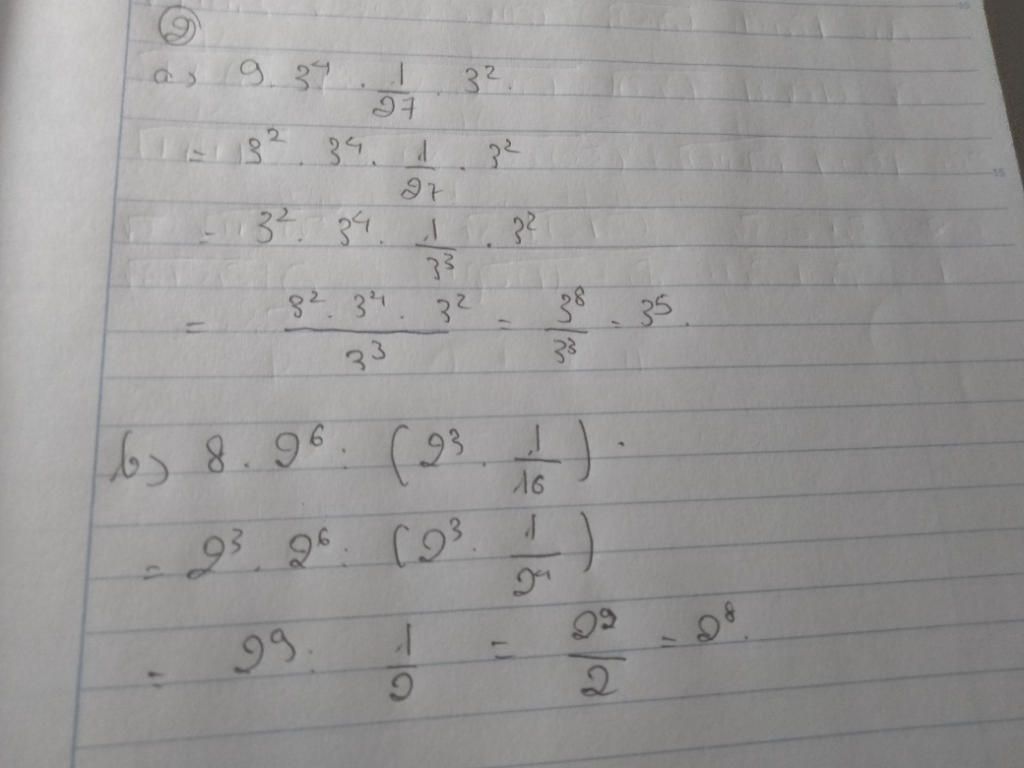 ②
a) 9 . 3⁴ . 1/27 . 3² .
= 3² . 3⁴ . 1/27 . 3²
= 3² . 3⁴ . 1/3³ . 3²
= 3² . 3⁴ . 3² / 3³ = 3⁸/3³ = 3⁵ .
b) 8 . 2⁶ : (2³ . 1/16) .
= 2³ . 2⁶ : (2³ . 1/2⁴)
= 2⁹ : 1/2 = 2⁹/2 = 2⁸ .